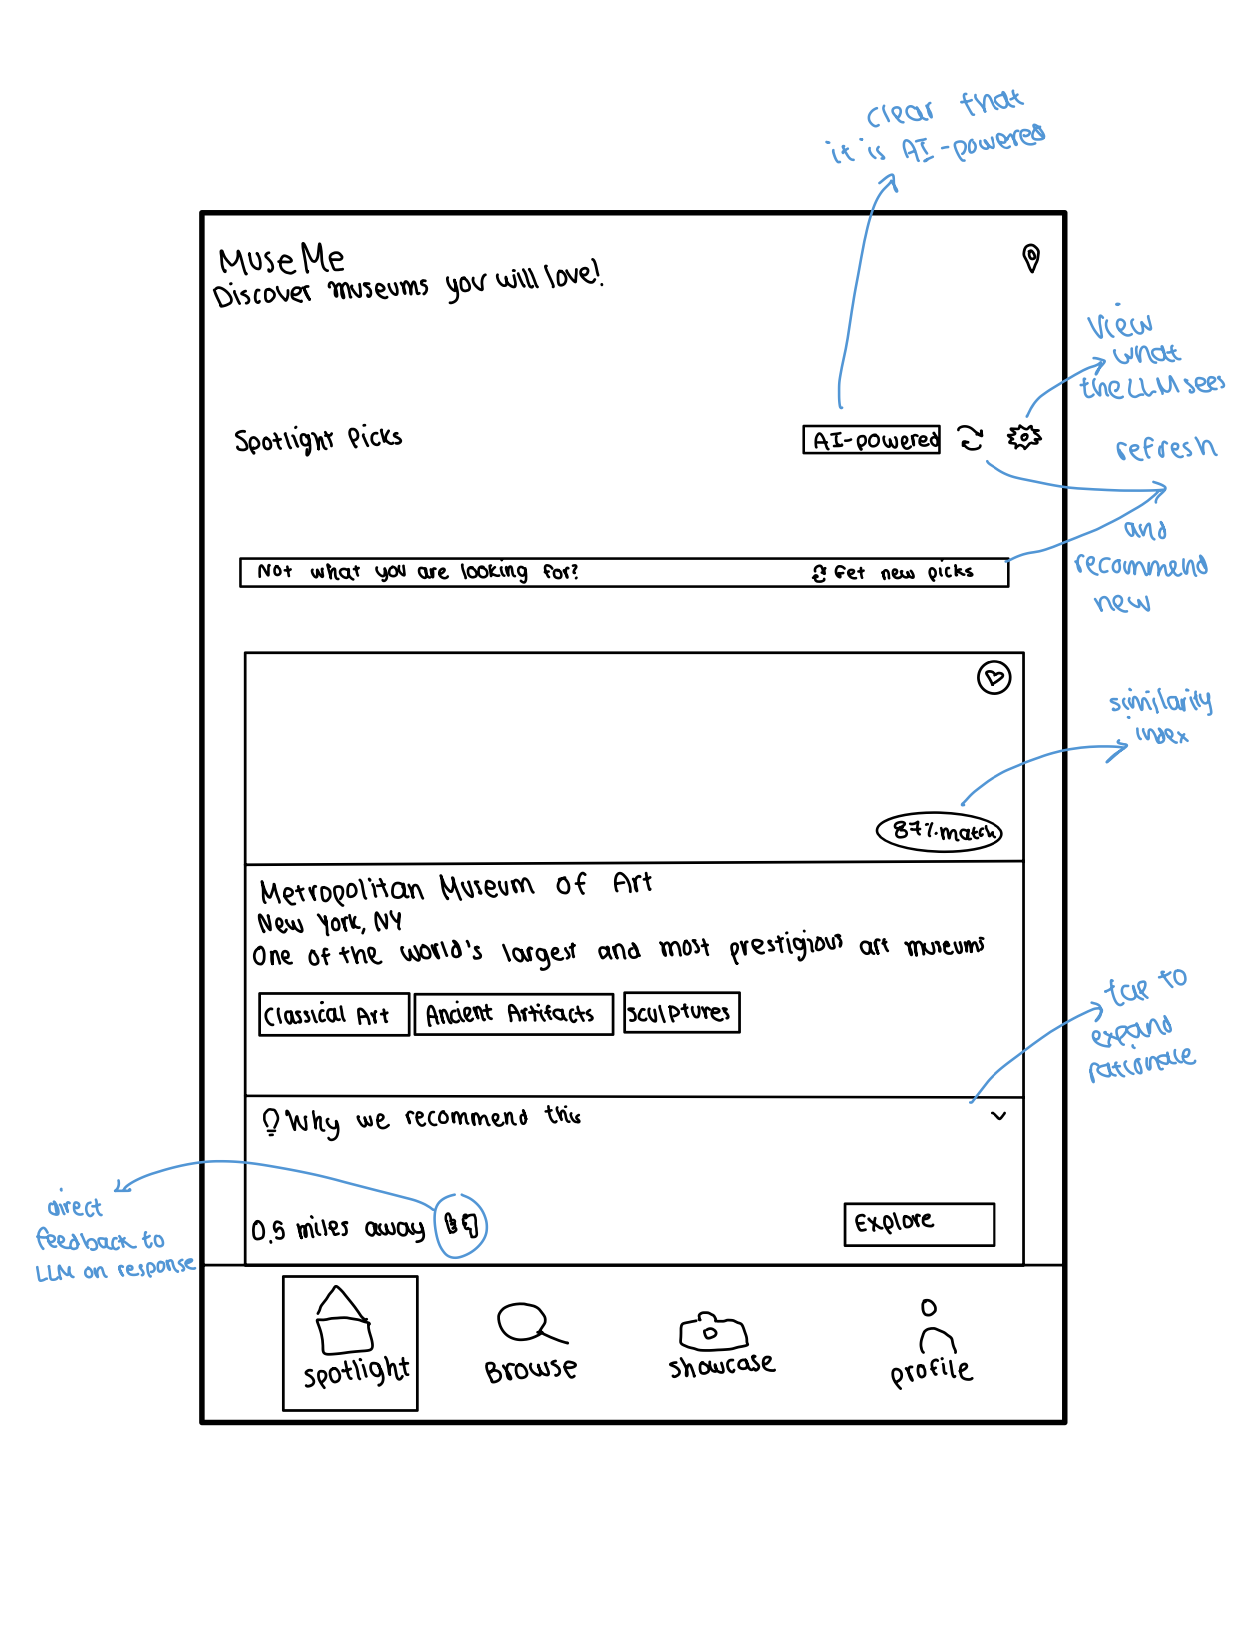 clear that
it is AI-powered
MuseMe
Discover museums you will love!
view
what
the LLM sees
Spotlight Picks
AI-powered
refresh
and
recommend
new
Not what you are looking for?
Get new picks
similarity
index
87% match
Metropolitan Museum of Art
New York, NY
One of the world's largest and most prestigious art museums
Classical Art
Ancient Artifacts
sculptures
tap to
expand
rationale
Why we recommend this
direct
feedback to
LLM on response
0.5 miles away
Explore
Spotlight
Browse
Showcase
profile